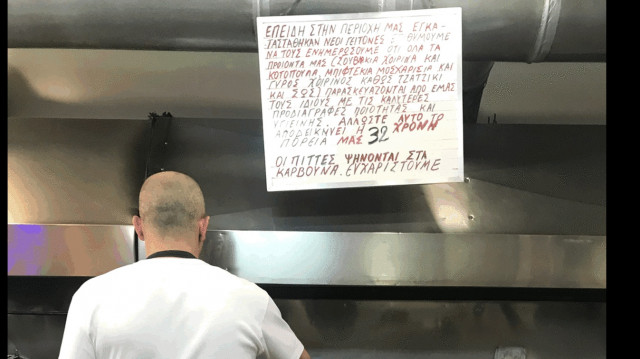 ΕΠΕΙΔΗ ΣΤΗΝ ΠΕΡΙΟΧΗ ΜΑΣ ΕΓΚΑ-
ΤΑΣΤΑΘΗΚΑΝ ΝΕΟΙ ΓΕΙΤΟΝΕΣ ΕΠΙΘΥΜΟΥΜΕ
ΝΑ ΤΟΥΣ ΕΝΗΜΕΡΩΣΟΥΜΕ ΟΤΙ ΟΛΑ ΤΑ
ΠΡΟΪΟΝΤΑ ΜΑΣ (ΣΟΥΒΛΑΚΙΑ ΧΟΙΡΙΝΑ ΚΑΙ
ΚΟΤΟΠΟΥΛΑ, ΜΠΙΦΤΕΚΙΑ ΜΟΣΧΑΡΙΣΙΑ ΚΑΙ
ΓΥΡΟΣ ΧΟΙΡΙΝΟΣ ΚΑΘΩΣ ΤΖΑΤΖΙΚΙ
ΚΑΙ ΣΩΣ) ΠΑΡΑΣΚΕΥΑΖΟΝΤΑΙ ΑΠΟ ΕΜΑΣ
ΤΟΥΣ ΙΔΙΟΥΣ ΜΕ ΤΙΣ ΚΑΛΥΤΕΡΕΣ
ΠΡΟΔΙΑΓΡΑΦΕΣ ΠΟΙΟΤΗΤΑΣ ΚΑΙ
ΥΓΙΕΙΝΗΣ. ΑΛΛΩΣΤΕ ΑΥΤΟ ΤΟ
ΑΠΟΔΕΙΚΝΥΕΙ Η 32 ΧΡΟΝΗ
ΠΟΡΕΙΑ ΜΑΣ
ΟΙ ΠΙΤΤΕΣ ΨΗΝΟΝΤΑΙ ΣΤΑ
ΚΑΡΒΟΥΝΑ. ΕΥΧΑΡΙΣΤΟΥΜΕ